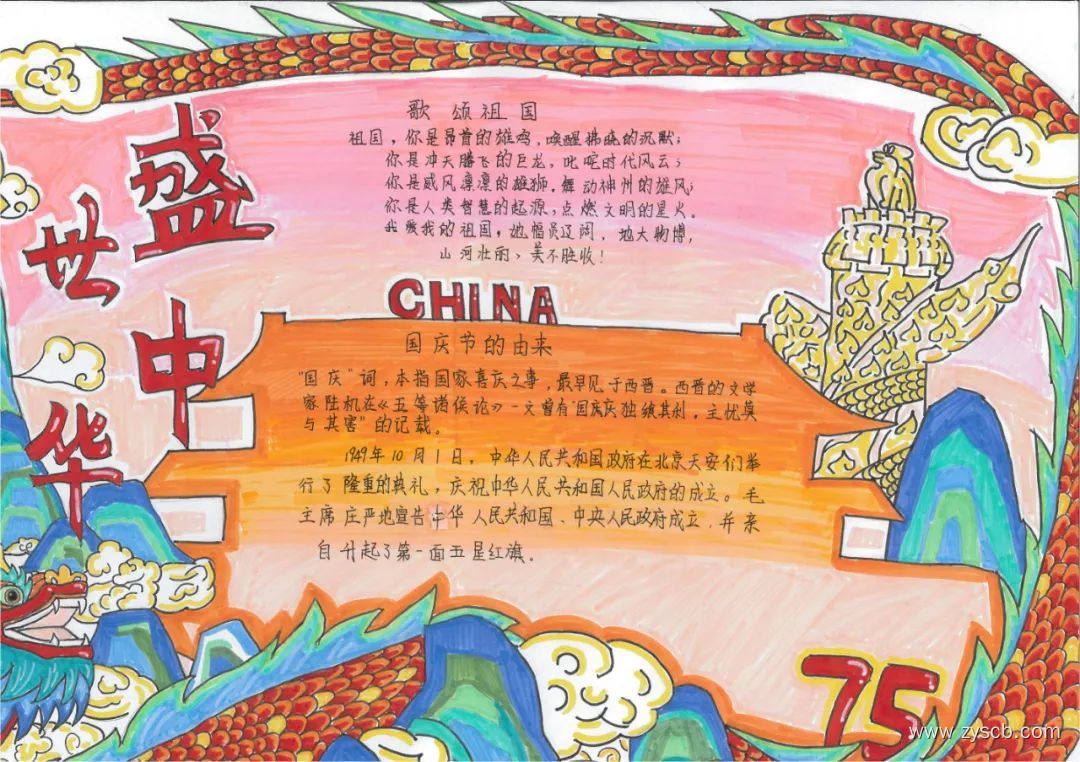 盛世中华
歌颂祖国
祖国，你是昂首的雄鸡，唤醒拂晓的沉默；
你是冲天腾飞的巨龙，叱咤时代风云；
你是威风凛凛的雄狮，舞动神州的雄风；
你是人类智慧的起源，点燃文明的星火。
我爱我的祖国，地幅员辽阔，地大物博，
山河壮丽、美不胜收！
CHINA
国庆节的由来
"国庆"词，本指国家喜庆之事，最早见于西晋。西晋的文学
家陆机在《五等诸侯论》一文曾有"国庆庆独飨其利，主忧莫
与其害"的记载。
1949年10月1日，中华人民共和国政府在北京天安们举
行了隆重的典礼，庆祝中华人民共和国人民政府的成立。毛
主席庄严地宣告中华人民共和国、中央人民政府成立，并亲
自升起了第一面五星红旗。
75
www.zyscb.com